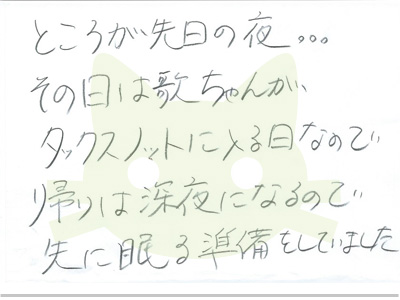 ところが先日の夜。。。
その日は歌ちゃんが、
タックスノットに入る日なので
帰りは深夜になるので
先に眠る準備をしていました